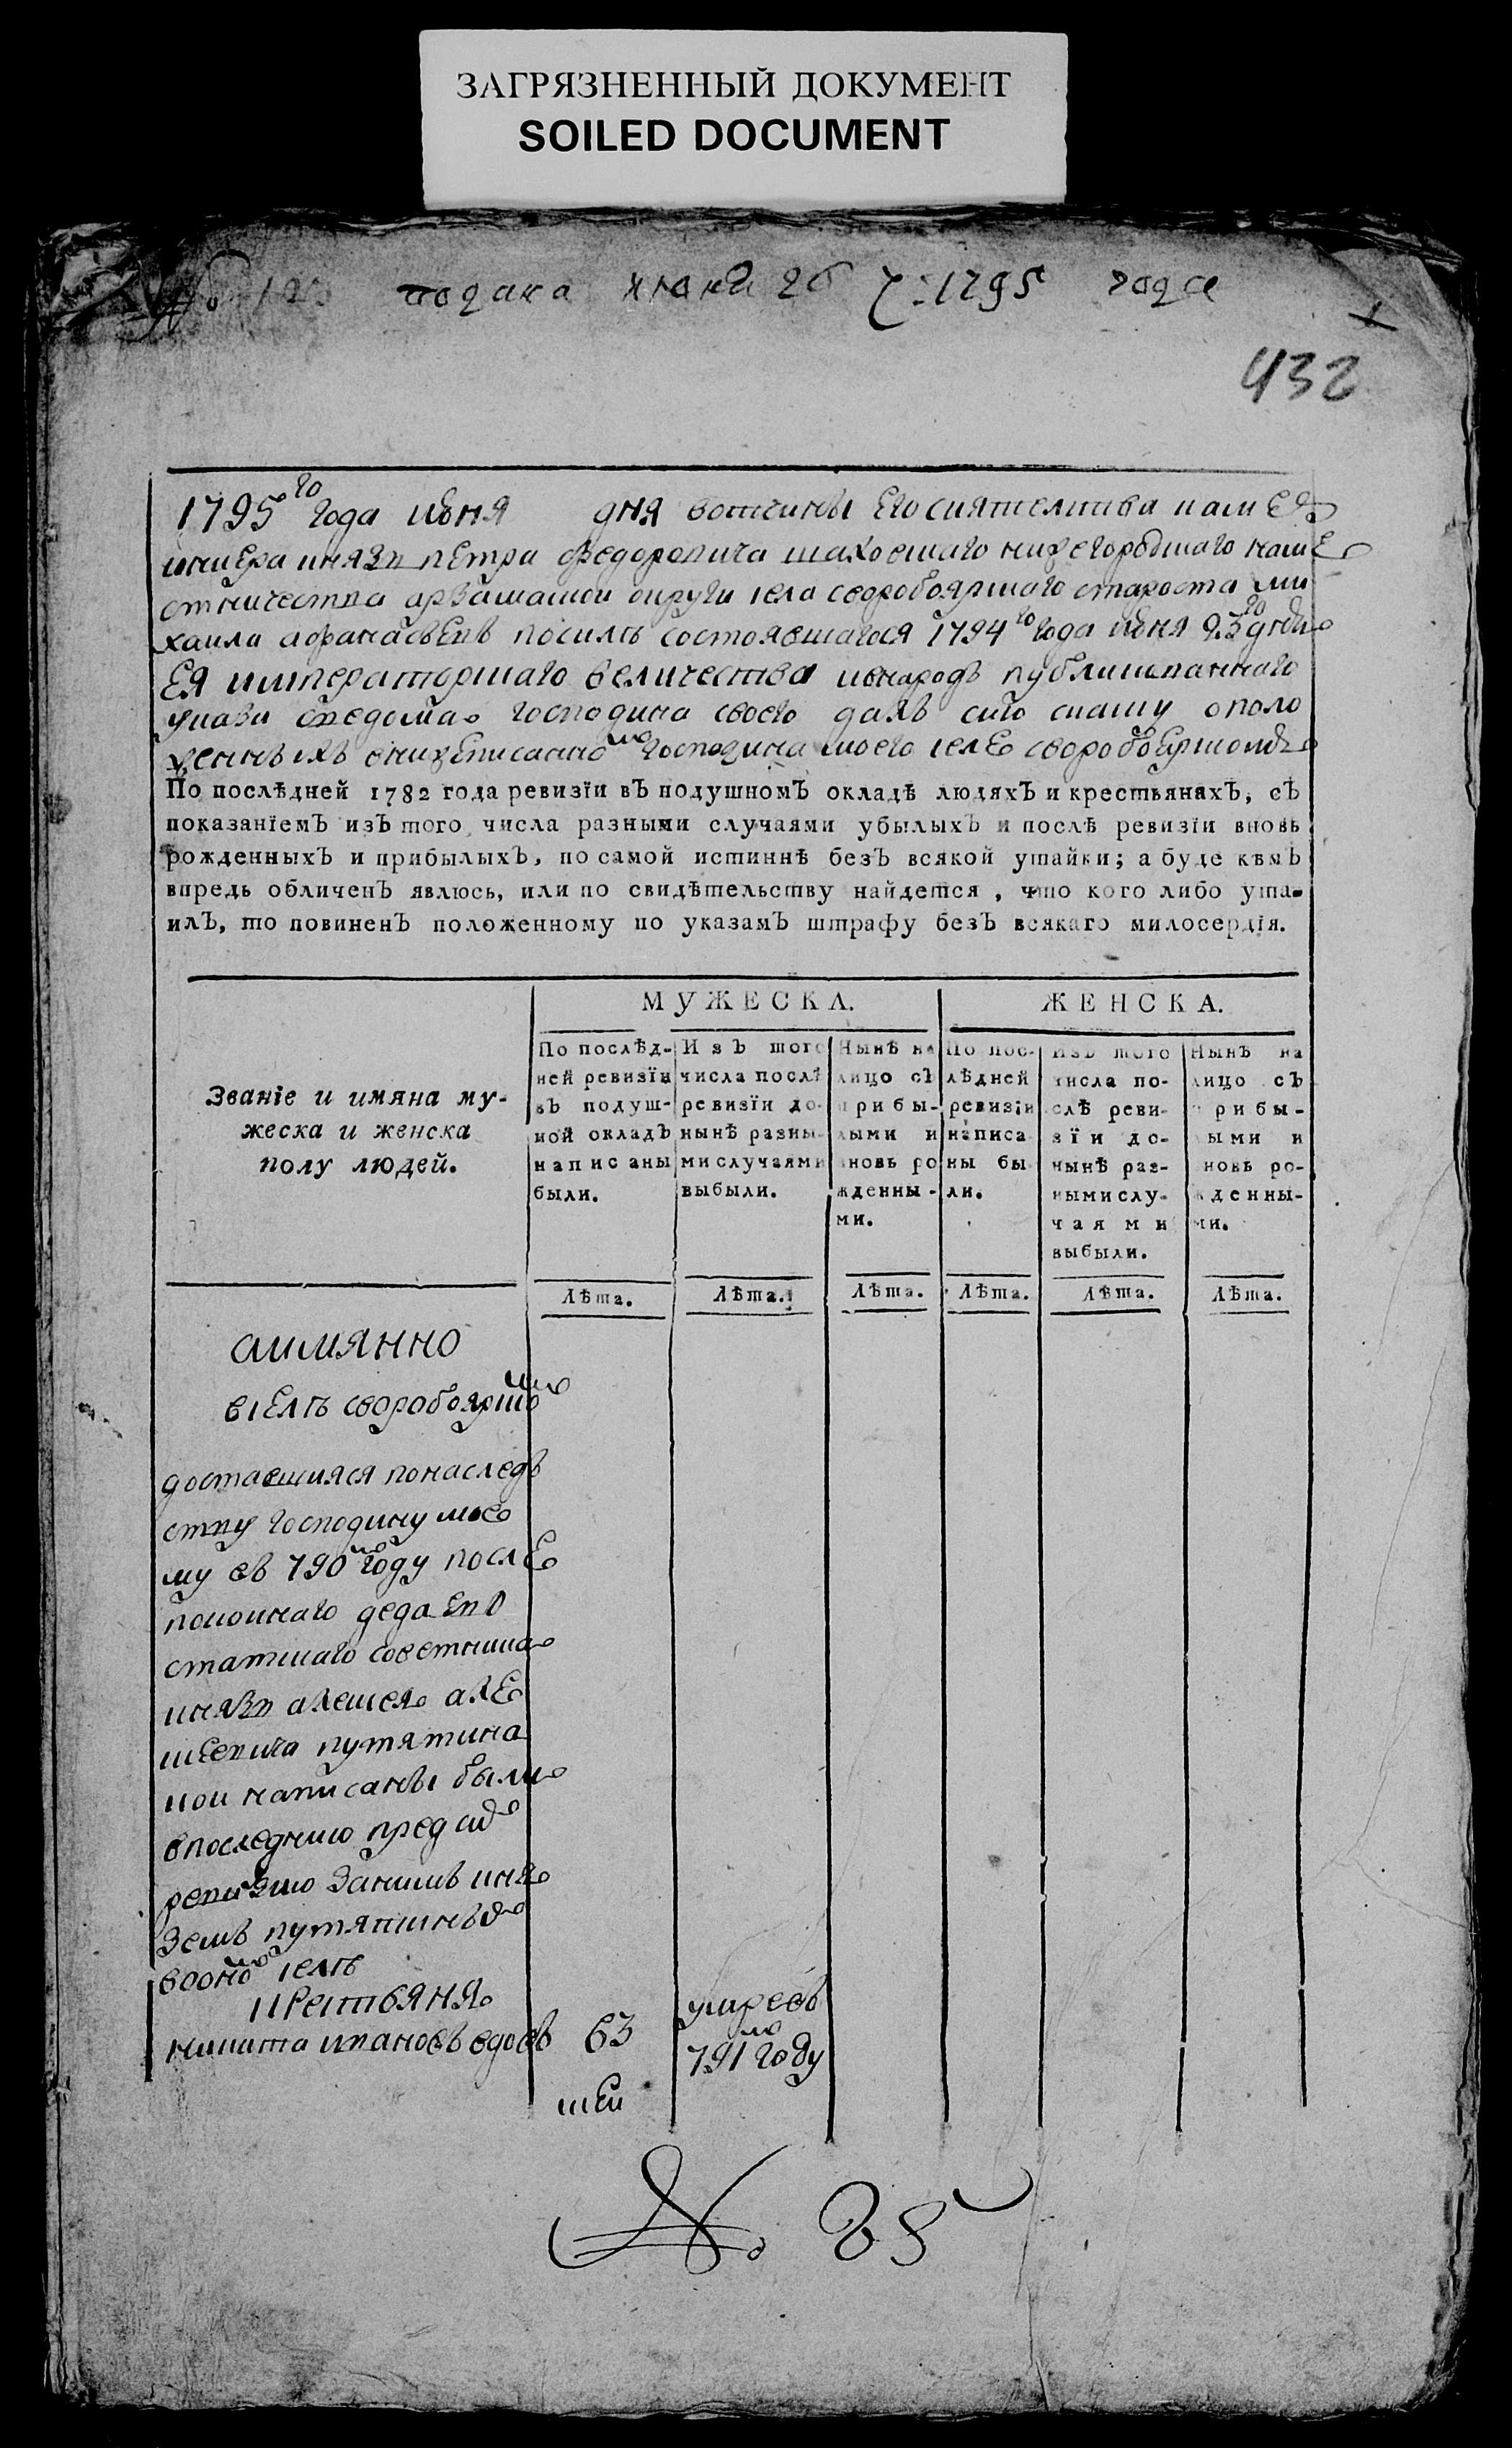 ЗАГРЯЗНЕННЫЙ ДОКУМЕНТ
SOILED DOCUMENT
№ подана июня 26 ч: 1795 года
432
1795го года июня дня вотчины его сиятелства каме
июнкера князя петра федоровича шаховскаго нижегородскаго наме
стничества арзамаской округи села своробоярскаго староста ми
хаила афанасьевъ посилѣ состоявшагося 1794го года июня 23го дня
Ея императорскаго величества ивнародъ публикованнаго
указа сведома господина своего далъ сию скаску ополо
женныхъ внижеписанномъ господина моего селе своробоярскомъ
По послѣдней 1782 года ревизїи въ подушномъ окладѣ людяхъ и крестьянахъ, съ
показанїемъ изъ того числа разными случаями убылыхъ и послѣ ревизїи вновь
рожденныхъ и прибылыхъ, по самой истиннѣ безъ всякой утайки; а буде кѣмъ
впредь обличенъ явлюсь, или по свидѣтельству найдется, что кого либо ута-
илъ, то повиненъ положенному по указамъ штрафу безъ всякаго милосердїя.
Званїе и имяна му-
жеска и женска
полу людей.
МУЖЕСКА.
ЖЕНСКА.
По послѣд-
ней ревизїи
въ подуш-
ной окладъ
написаны
были.
Изъ того
числа послѣ
ревизїи до-
нынѣ разны-
ми случаями
выбыли.
Нынѣ на
лицо съ
прибы-
лыми и
вновь ро
жденны-
ми.
По пос-
лѣдней
ревизїи
написа
ны бы
ли.
Изъ того
числа по-
слѣ реви-
зїи до-
нынѣ раз-
ными слу-
чаями
выбыли.
Нынѣ на
лицо съ
прибы-
лыми и
вновь ро-
жденны-
ми.
Лѣта.
Лѣта.
Лѣта.
Лѣта.
Лѣта.
Лѣта.
аимянно
вселѣ своробоярскомъ
доставшияся понаслед
ству господину мое
му въ 790м году после
покоинаго деда ево
статскаго советника
князя алексея але
ксеевича путятина
кои написаны были
впоследнюю пред сид
ревизию заним кня
зем путятиным
воном селѣ
крестьяня
никита ивановъ вдовъ
63
умре въ
791м году
скаи
№ 25